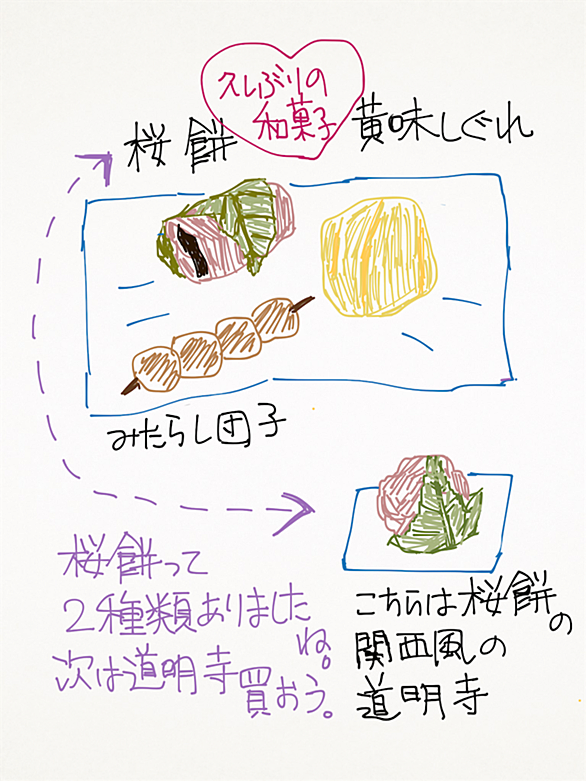 久しぶりの
和菓子
桜餅
黄味しぐれ
みたらし団子
桜餅って
2種類ありました
ね。
次は道明寺
買おう。
こちらは桜餅
の
関西風の
道明寺